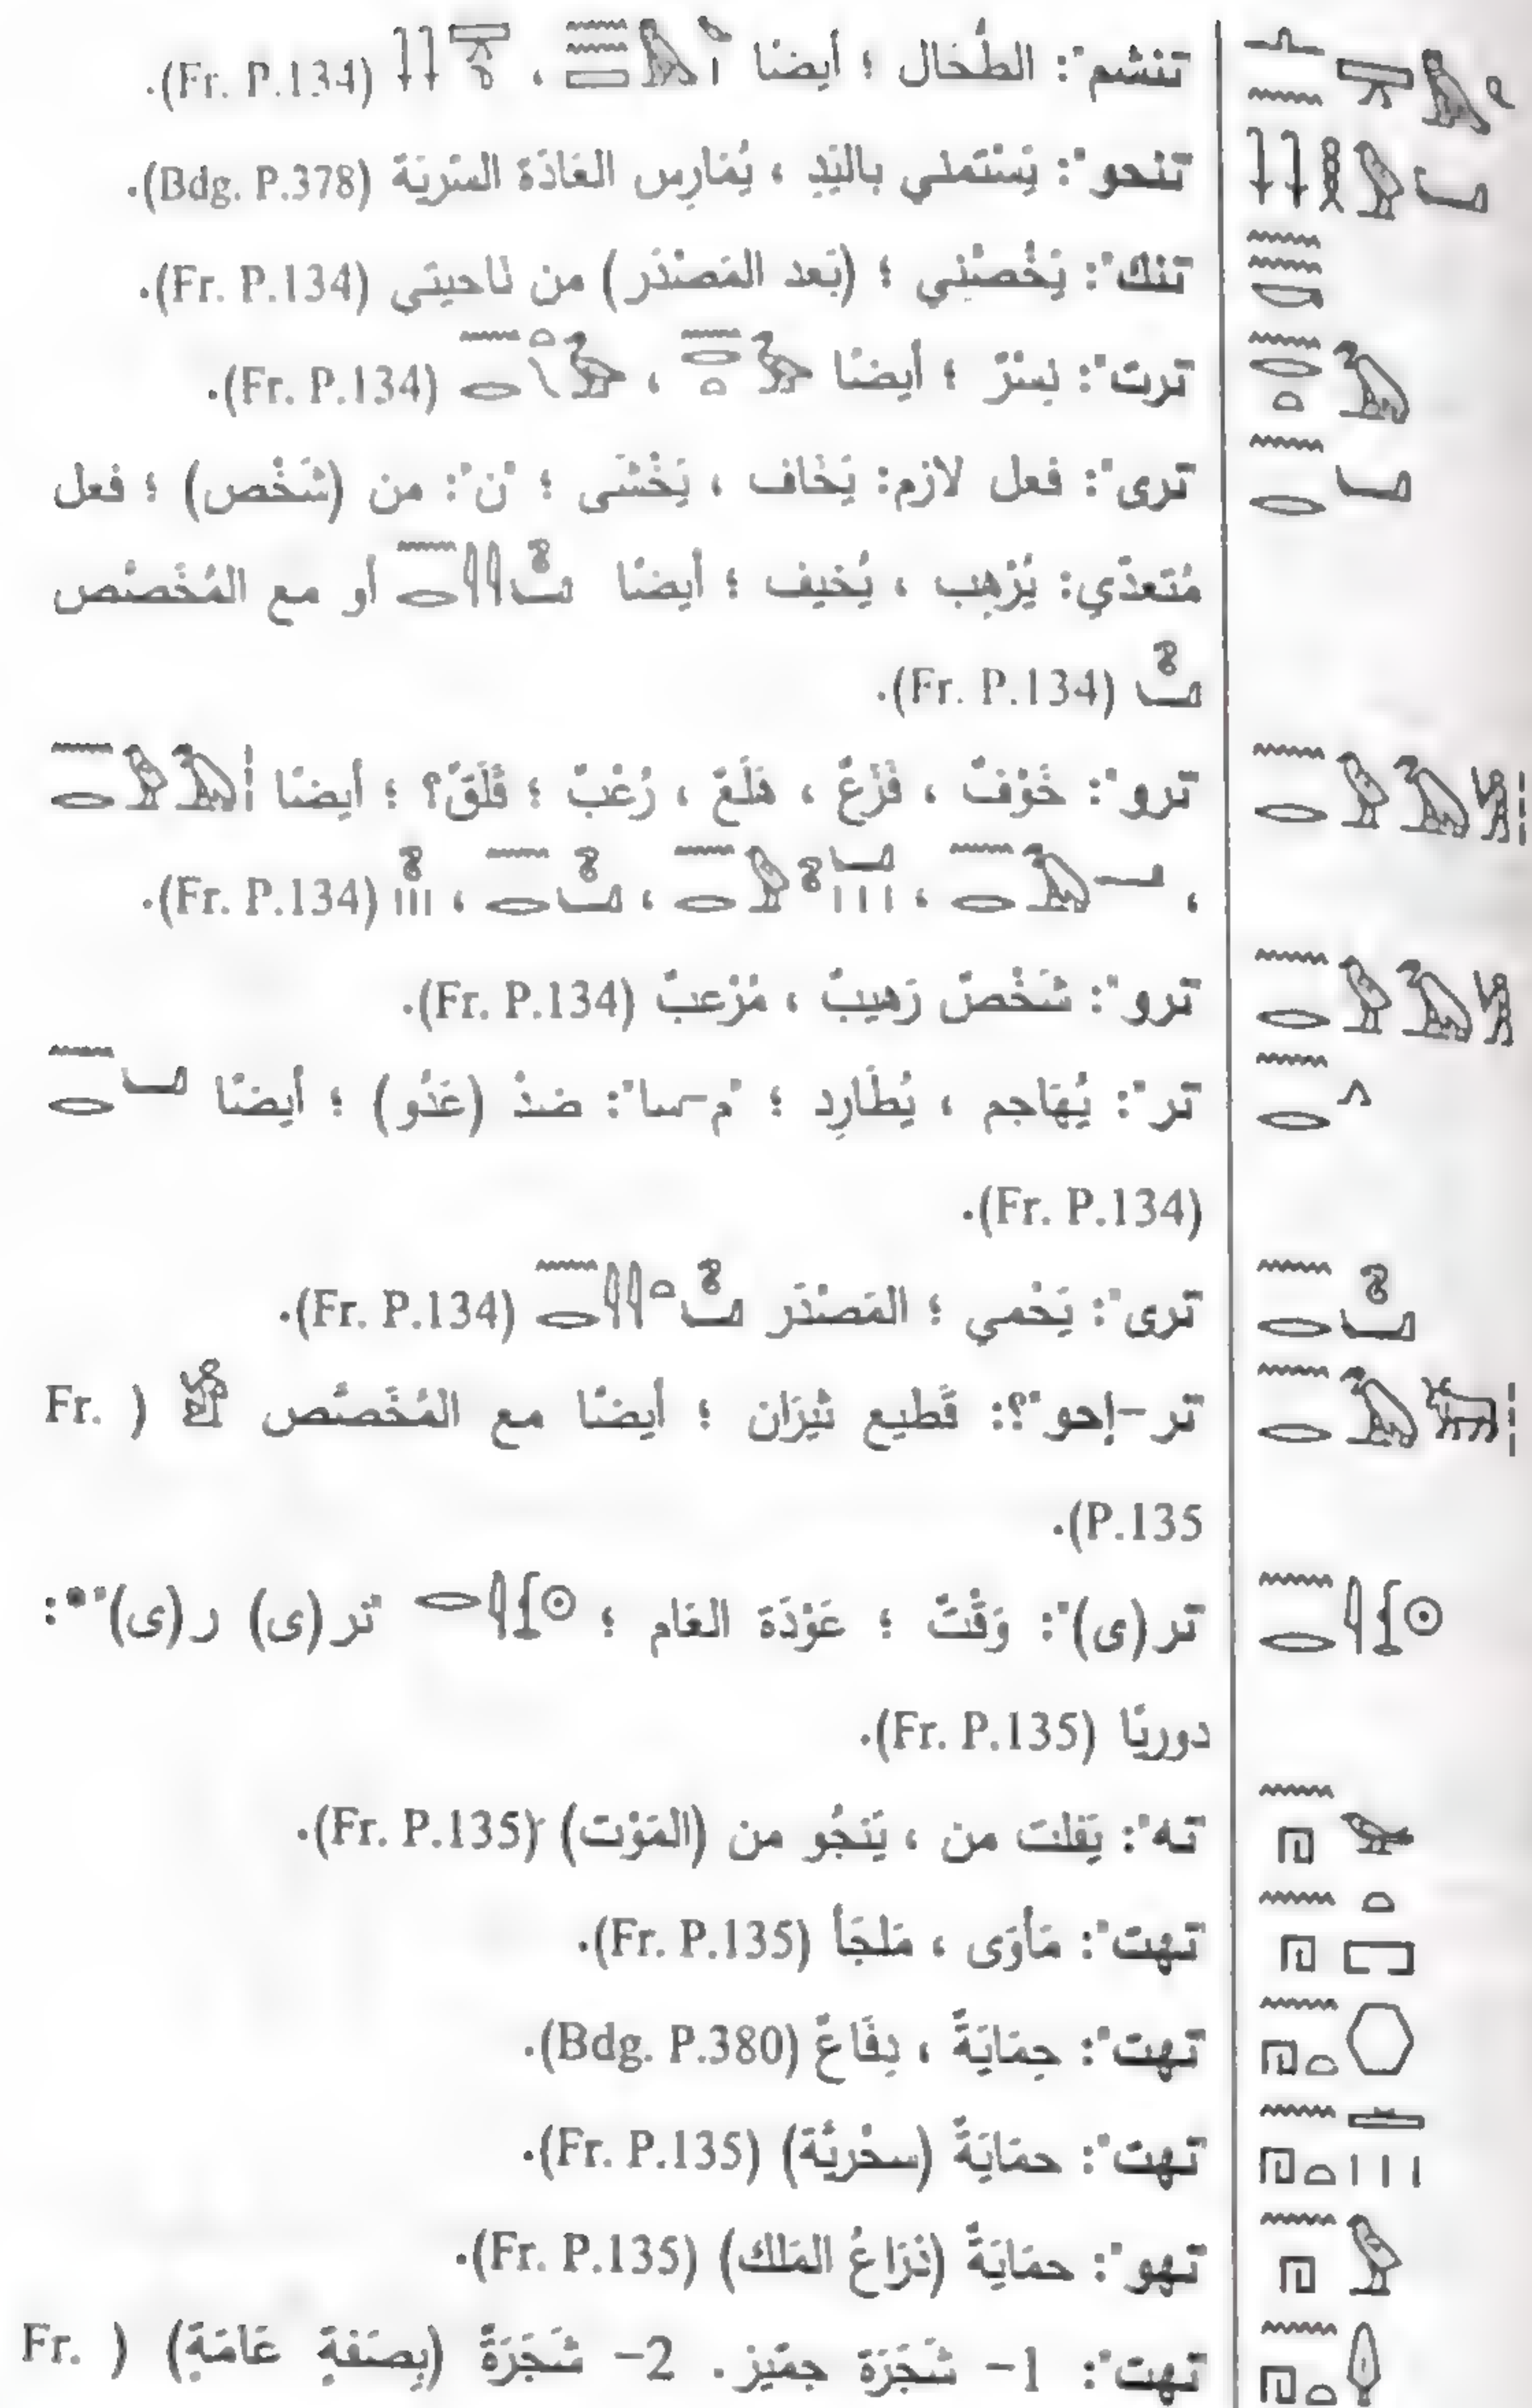 "ننشم": الطّحَال ؛ أيضًا ، (Fr. P.134).
"ننحو": يَسْتَمني بِاليَدِ ، يُمَارِس العَادَة السّرّيَة (Bdg. P.378).
"ننك": يَخُصُّني ؛ (بَعد المَصْدَر) من نَاحيتي (Fr. P.134).
"نرت": نِسْرٌ ؛ أيضًا ، (Fr. P.134).
"نرى": فعل لازم: يَخَاف ، يَخْشَى ؛ "ن": من (شَخْص) ؛ فعل
مُتَعدّي: يُرْهِب ، يُخيف ؛ أيضًا أو مع المُخَصّص
(Fr. P.134).
"نرو": خَوْفٌ ، فَزَعٌ ، هَلَعٌ ، رُعْبٌ ؛ قَلَقٌ؟ ؛ أيضًا
، ، ، ، (Fr. P.134).
"نرو": شَخْصٌ رَهيبٌ ، مُرْعبٌ (Fr. P.134).
"نر": يُهَاجم ، يُطَارِد ؛ "م-سا": ضدّ (عَدُو) ؛ أيضًا
(Fr. P.134).
"نرى": يَحْمي ؛ المَصْدَر (Fr. P.134).
"نر-إحو"؟: قَطيع ثيرَان ؛ أيضًا مع المُخَصّص (Fr.
P.135).
"نر(ى)": وَقْتٌ ؛ عَوْدَة العَام ؛ "نر(ى) ر(ى)":
دوريًا (Fr. P.135).
"نه": يَفلت من ، يَنجُو من (المَوْت) (Fr. P.135).
"نهت": مَأوَى ، مَلجَأ (Fr. P.135).
"نهت": حِمَايَةٌ ، دِفَاعٌ (Bdg. P.380).
"نهت": حمَايَةٌ (سحْريَّة) (Fr. P.135).
"نهو": حمَايَةٌ (ذرَاعُ المَلك) (Fr. P.135).
"نهت": 1- شَجَرَة جمّيز. 2- شَجَرَةٌ (بِصفَةٍ عَامَةٍ) (Fr.